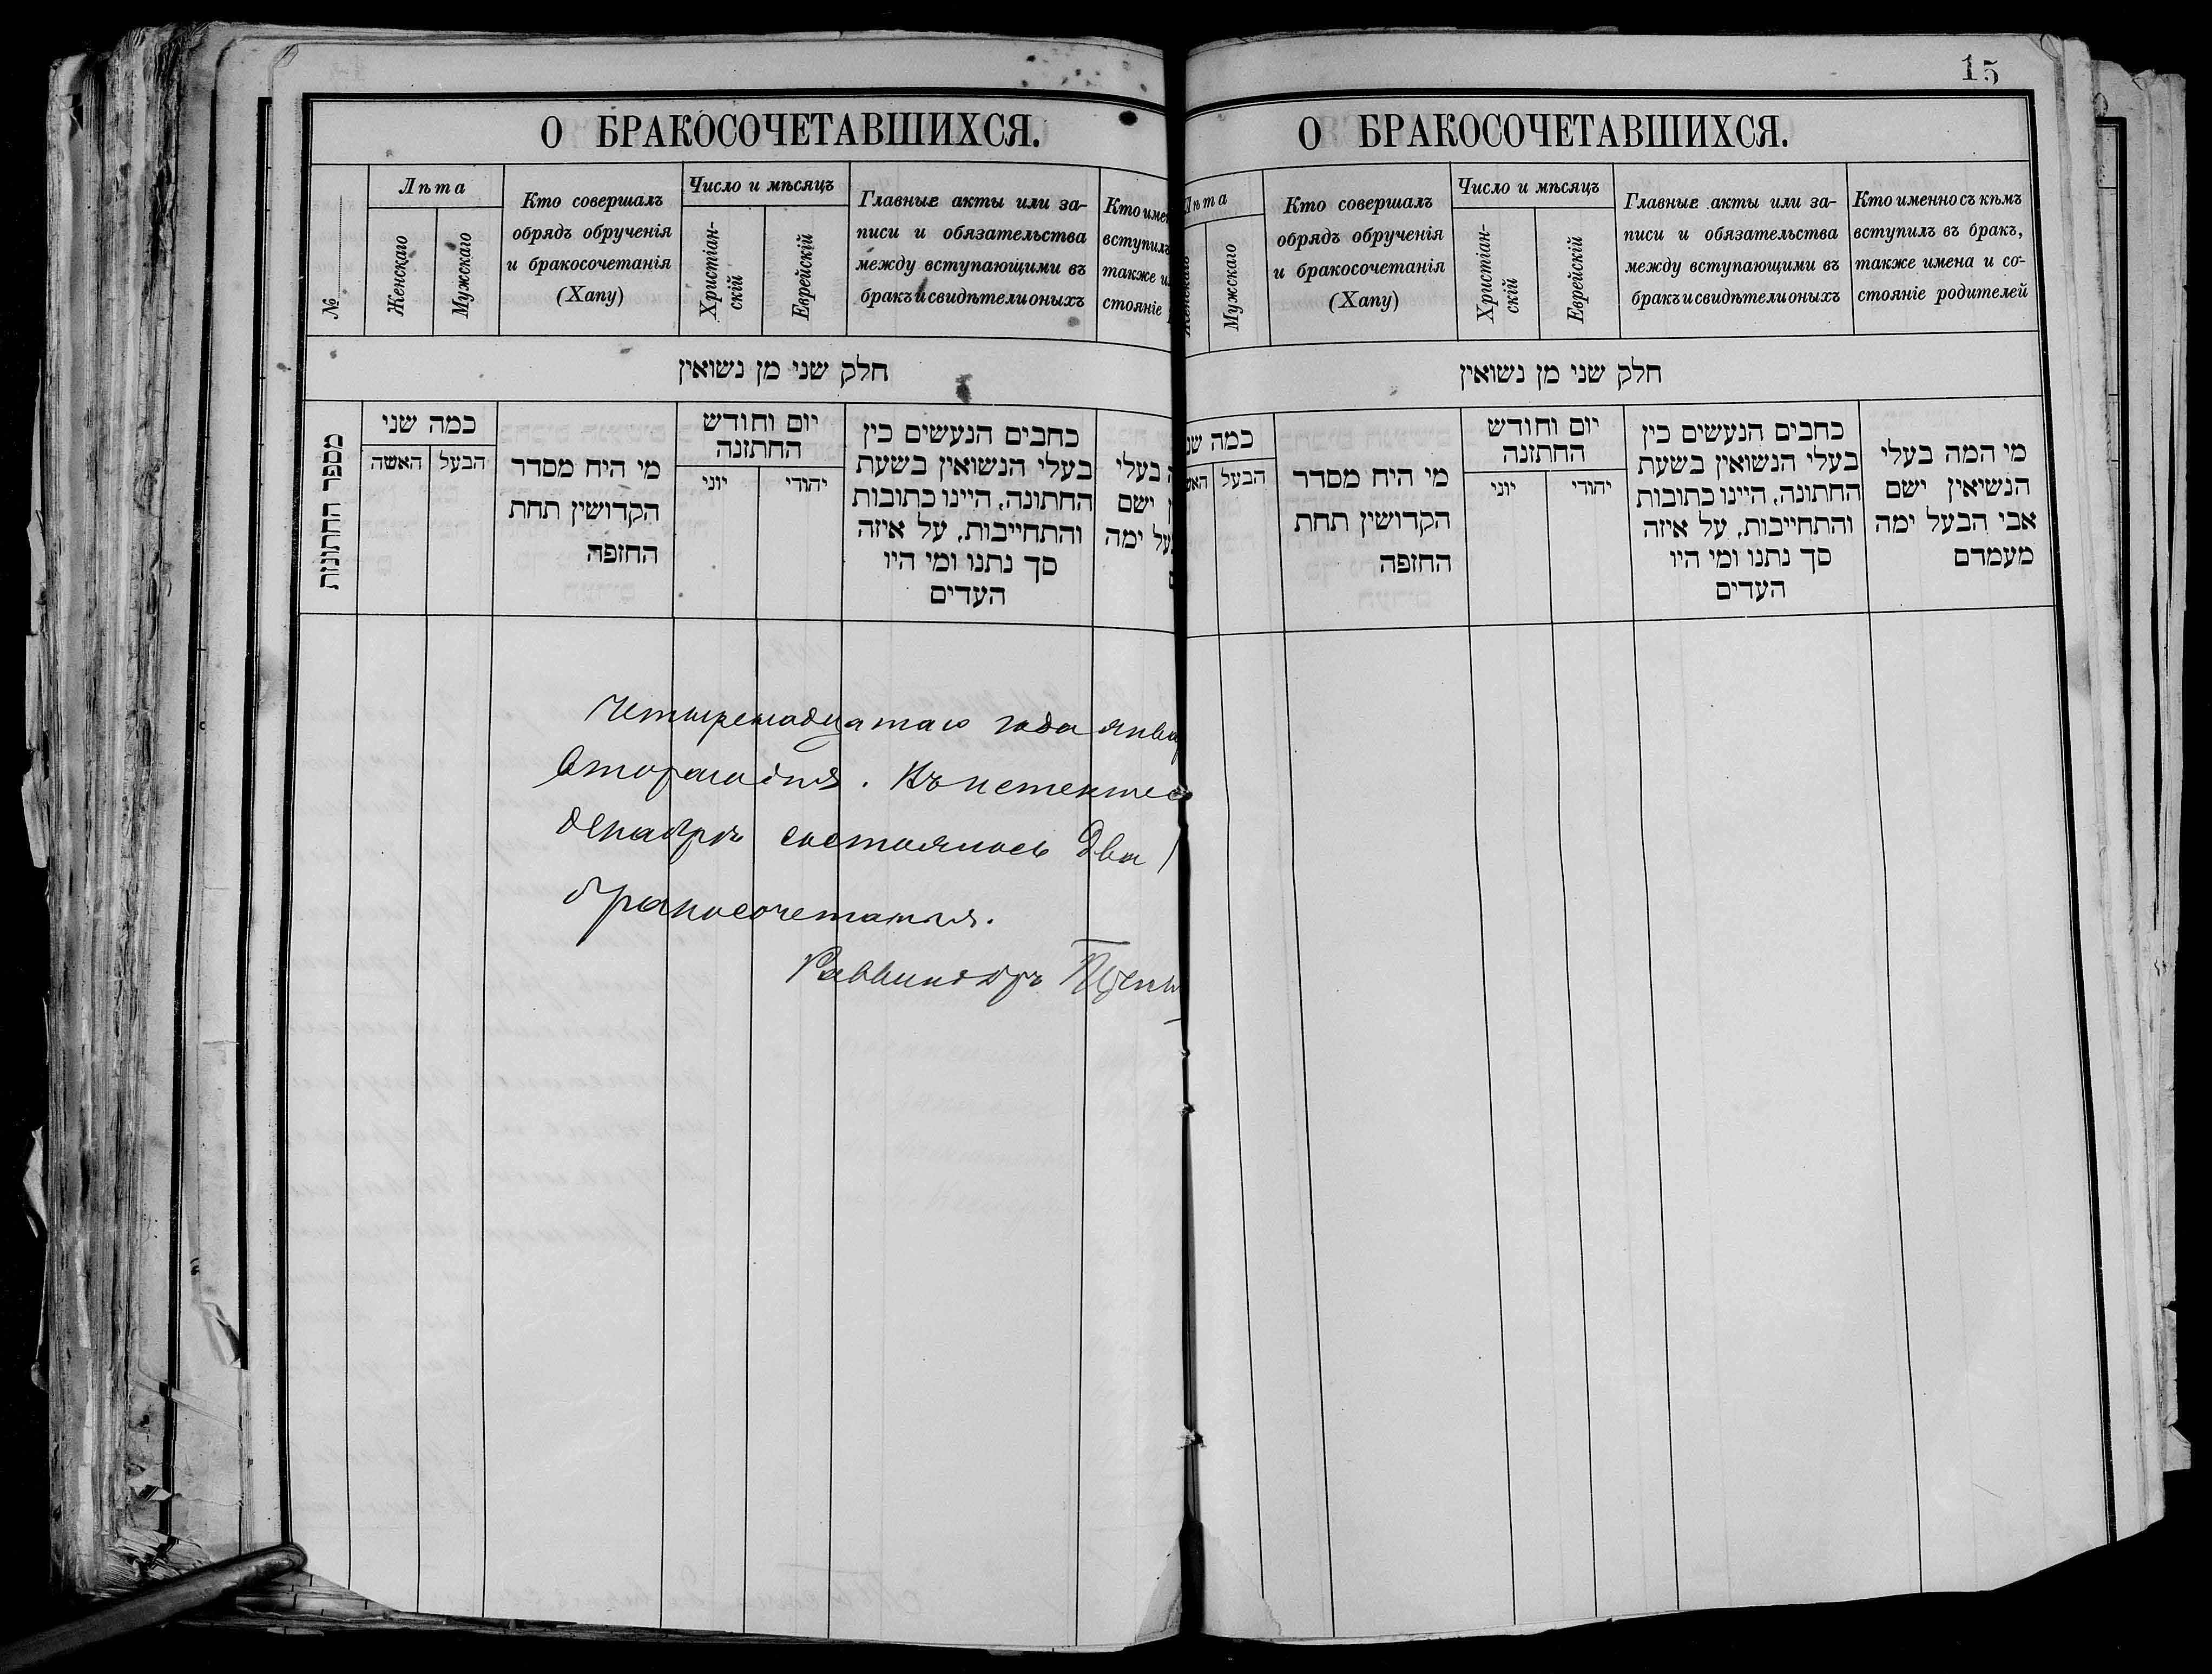 15
О БРАКОСОЧЕТАВШИХСЯ.
№
Лѣта
Женскаго
Мужскаго
Кто совершалъ
обрядъ обрученія
и бракосочетанія
(Хапу)
Число и мѣсяцъ
Христіан-
скій
Еврейскій
Главные акты или за-
писи и обязательства
между вступающими въ
бракъ и свидѣтели оныхъ
Кто имен
вступилъ
также и
стояніе
חלק שני מן נשואין
מספר החתונות
כמה שני
הבעל האשה
מי היח מסדר
הקדושין תחת
החופה
יום וחודש
החתונה
יהודי יוני
כתבים הנעשים בין
בעלי הנשואין בשעת
החתונה, היינו כתובות
והתחייבות, על איזה
סך נתנו ומי היו
העדים
בעלי
ישם
על ימה
Четыренадцатаго года янва
втораго дня. Въ истекше
декабрѣ состоялось два
бракосочетания.
Раввинъ
О БРАКОСОЧЕТАВШИХСЯ.
Лѣта
Женскаго
Мужскаго
Кто совершалъ
обрядъ обрученія
и бракосочетанія
(Хапу)
Число и мѣсяцъ
Христіан-
скій
Еврейскій
Главные акты или за-
писи и обязательства
между вступающими въ
бракъ и свидѣтели оныхъ
Кто именно съ кѣмъ
вступилъ въ бракъ,
также имена и со-
стояніе родителей
חלק שני מן נשואין
כמה שנ
הבעל האש
מי היח מסדר
הקדושין תחת
החופה
יום וחודש
החתונה
יהודי יוני
כתבים הנעשים בין
בעלי הנשואין בשעת
החתונה, היינו כתובות
והתחייבות, על איזה
סך נתנו ומי היו
העדים
מי המה בעלי
הנשיאין ישם
אבי הבעל ימה
מעמדם